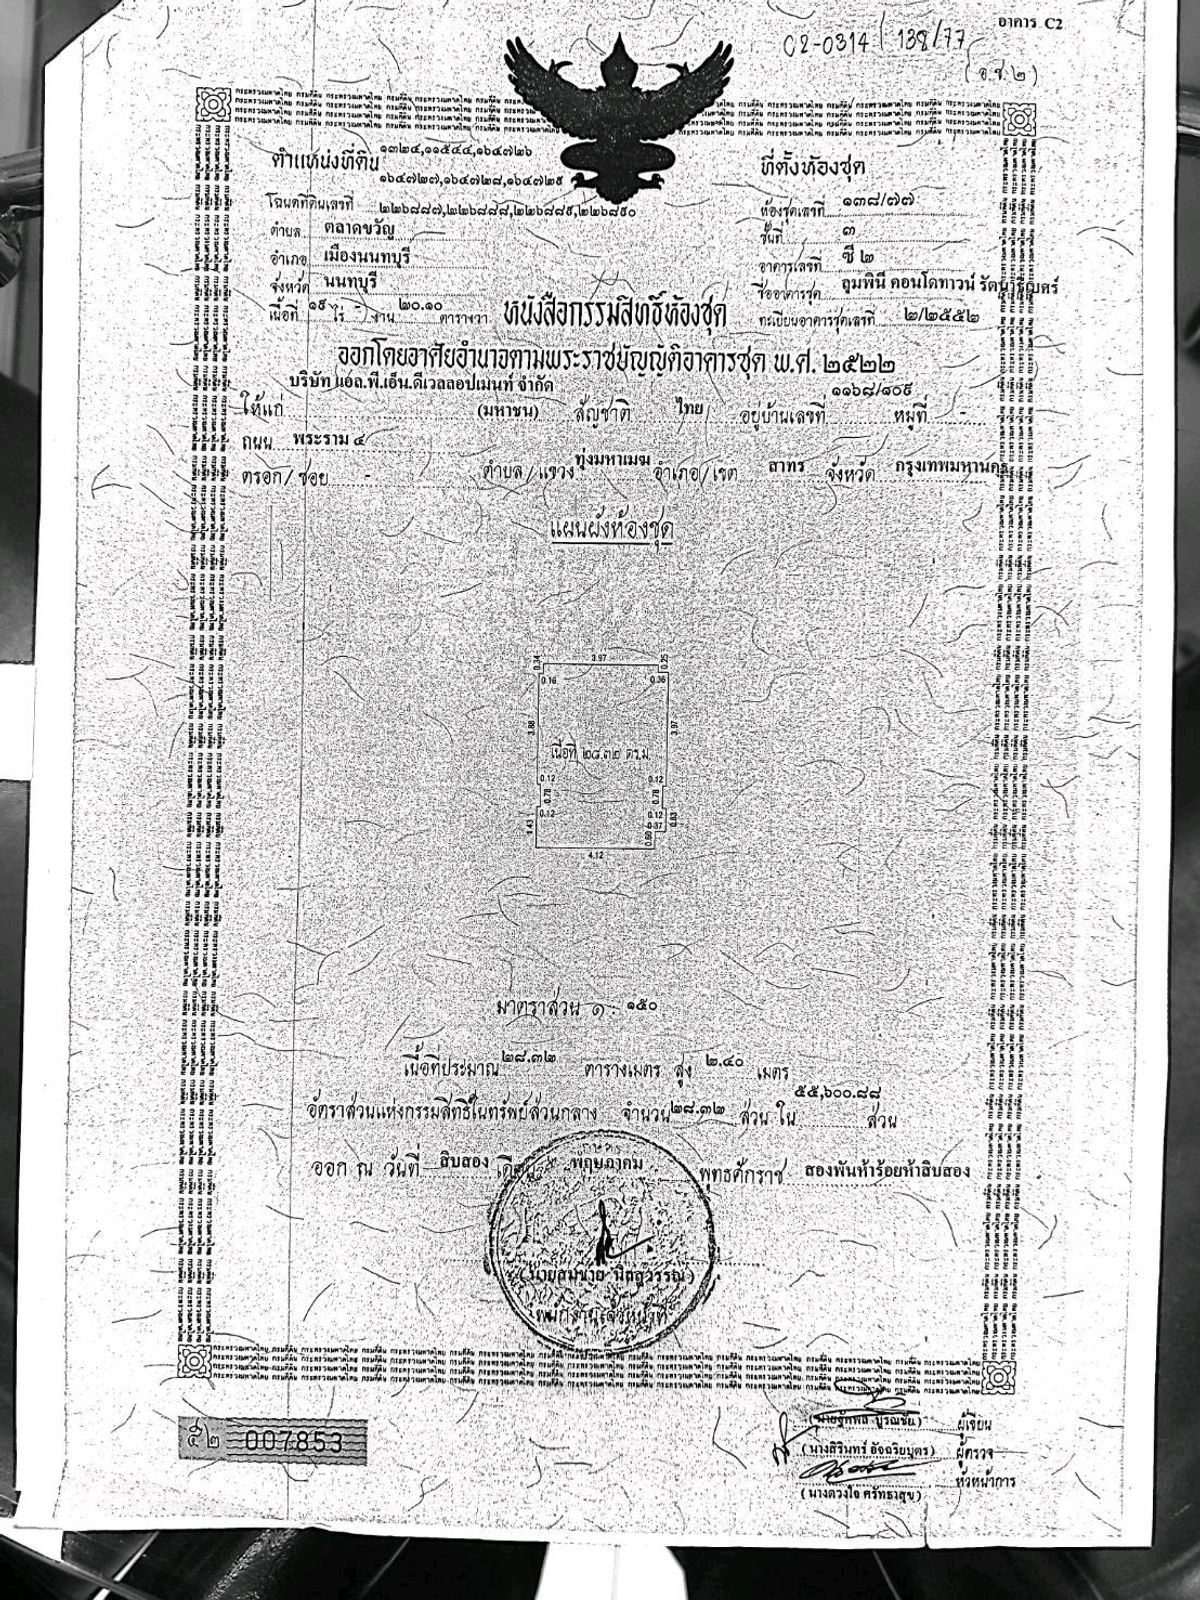 อาคาร C2
C2-0314 / 138/77
(อ.ช.๒)
ตำแหน่งที่ดิน ๑๓๒๔,๑๑๕๔๔,๑๖๔๗๒๖
๑๖๔๗๒๗,๑๖๔๗๒๘,๑๖๔๗๒๙
โฉนดที่ดินเลขที่ ๒๒๖๘๘๗,๒๒๖๘๘๘,๒๒๖๘๘๙,๒๒๖๘๙๐
ตำบล ตลาดขวัญ
อำเภอ เมืองนนทบุรี
จังหวัด นนทบุรี
เนื้อที่ ๑๙ ไร่ - งาน ๒๐.๑๐ ตารางวา
ที่ตั้งห้องชุด
ห้องชุดเลขที่ ๑๓๘/๗๗
ชั้นที่ ๓
อาคารเลขที่ ซี ๒
ชื่ออาคารชุด ลุมพินี คอนโดทาวน์ รัตนาธิเบศร์
ทะเบียนอาคารชุดเลขที่ ๒/๒๕๕๒
หนังสือกรรมสิทธิ์ห้องชุด
ออกโดยอาศัยอำนาจตามพระราชบัญญัติอาคารชุด พ.ศ. ๒๕๒๒
บริษัท แอล.พี.เอ็น.ดีเวลลอปเมนท์ จำกัด
ให้แก่ (มหาชน) สัญชาติ ไทย อยู่บ้านเลขที่ ๑๑๖๘/๑๐๙ หมู่ที่ -
ถนน พระราม ๔
ตรอก/ซอย - ตำบล/แขวง ทุ่งมหาเมฆ อำเภอ/เขต สาทร จังหวัด กรุงเทพมหานคร
แผนผังห้องชุด
0.34 3.97 0.25
0.16 0.36
3.88 3.97
เนื้อที่ ๒๘.๓๒ ตร.ม.
0.12 0.12
0.78 0.78
0.12 0.12
1.43 0.37 0.83
0.60
4.12
มาตราส่วน ๑ : ๑๕๐
เนื้อที่ประมาณ ๒๘.๓๒ ตารางเมตร สูง ๒.๔๐ เมตร
อัตราส่วนแห่งกรรมสิทธิ์ในทรัพย์ส่วนกลาง จำนวน ๒๘.๓๒ ส่วน ใน ๕๕,๖๐๐.๘๘ ส่วน
ออก ณ วันที่ สิบสอง เดือน พฤษภาคม พุทธศักราช สองพันห้าร้อยห้าสิบสอง
(นายสมชาย นิลสุวรรณ)
พนักงานเจ้าหน้าที่
๕๒ 007853
บูรณชัย) ผู้เขียน
(นางสิรินทร์ อัจฉริยบุตร) ผู้ตรวจ
หัวหน้าการ
(นางดวงใจ ศรัทธาสุข)